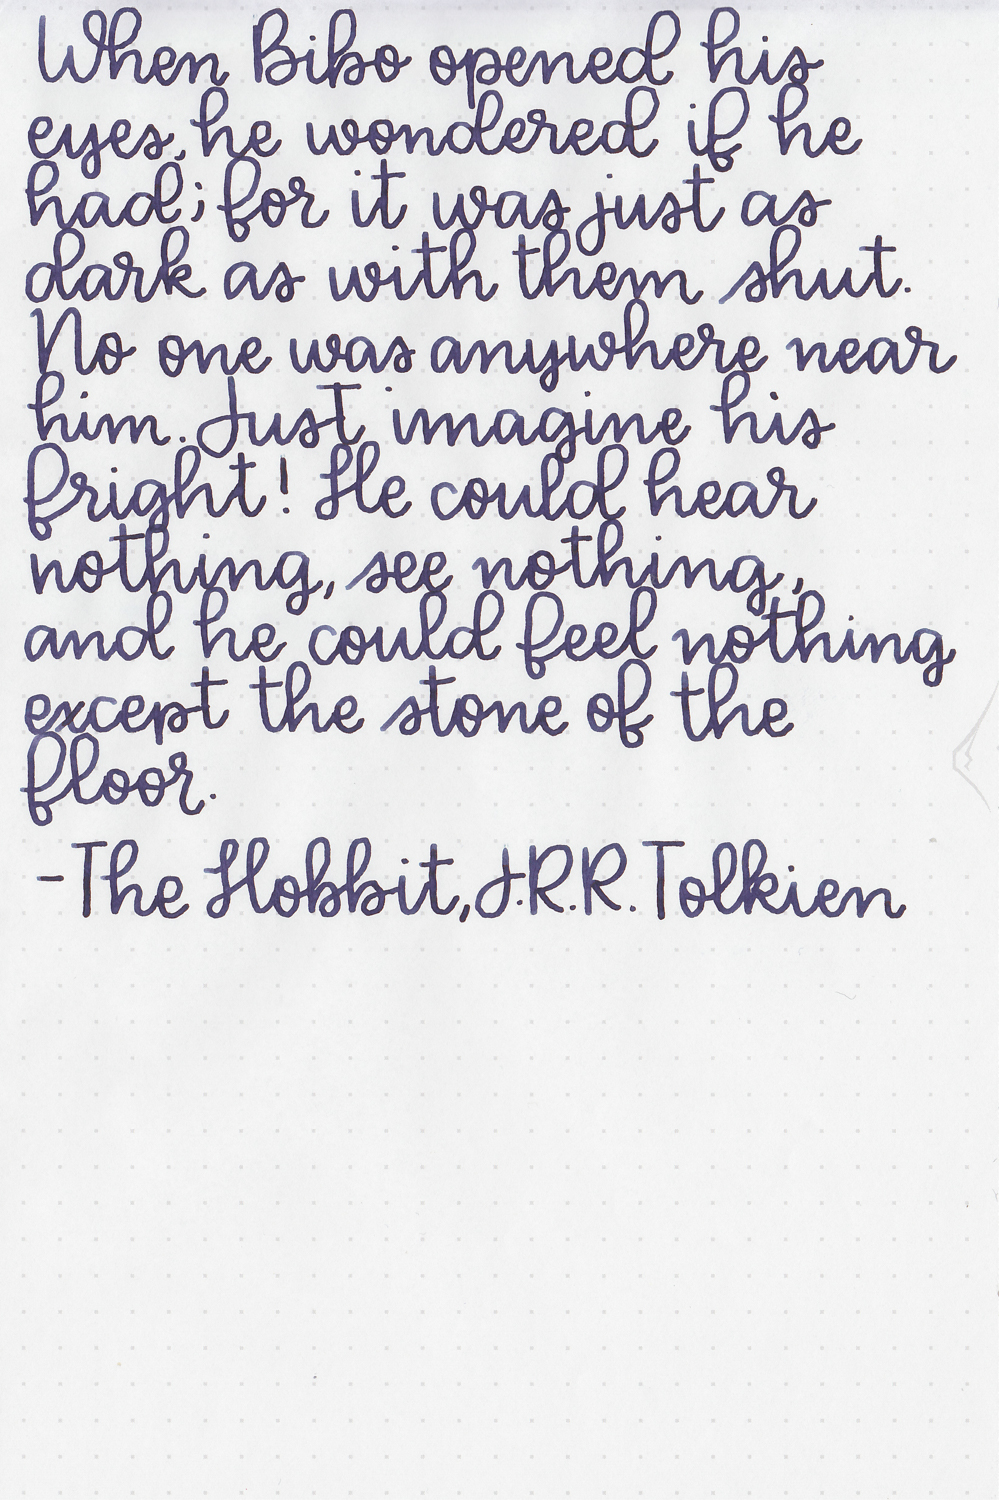 When Bibo opened his
eyes, he wondered if he
had; for it was just as
dark as with them shut.
No one was anywhere near
him. Just imagine his
fright! He could hear
nothing, see nothing,
and he could feel nothing
except the stone of the
floor.
-The Hobbit, J.R.R. Tolkien